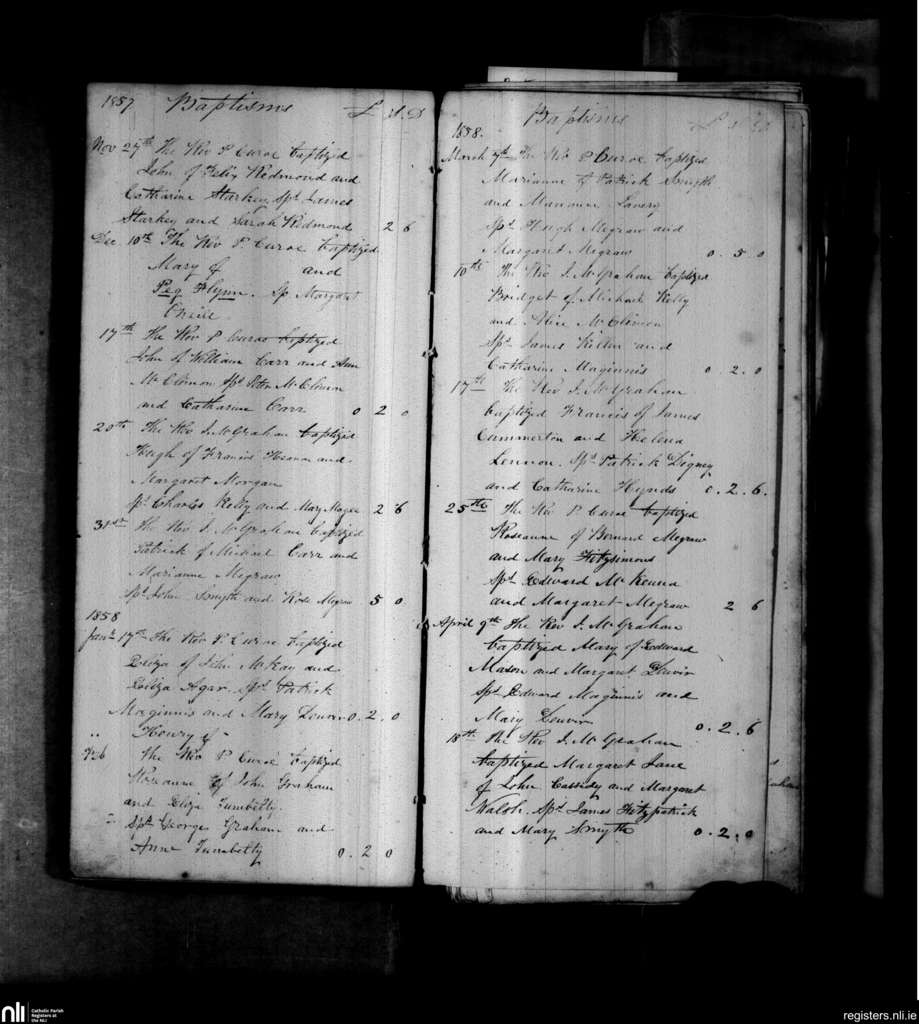 1857 Baptisms £ S. D
Nov 27th The Rev P Curoe baptized
John of Felix Redmond and
Catharine Starkey Spt James
Starkey and Sarah Redmond 2 6
Dec. 10th The Rev P Curoe baptized
Mary of and
Peg Flynn. Sp Margaret
17th The Rev P Curoe baptized
John of William Carr and Ann
McClimon Spt Peter McClimon
and Catharine Carr 0 2 0
20th The Rev J. McGrahan baptized
Hugh of Francis and
Margaret Morgan
Spt Charles Kelly and Mary Magee 2 6
31st The Rev J. McGrahan baptized
Patrick of Michael Carr and
Marianne Megraw
Spt John Smyth and Rose Megraw 5 0
1858
Jany 17th The Rev P. Curoe baptized
Eliza of John McKay and
Eliza Agar. Spt Patrick
Maginnis and Mary 0. 2. 0
" Henry of
Feb The Rev P Curoe baptized
Roseanne of John Graham
and Eliza Tumbelty.
Spt George Graham and
Anne Tumbelty 0. 2 0
Baptisms £ S D
1858.
March 7th The Rev P Curoe baptized
Marianne of Patrick Smyth
and Marianne Lavery
Spt Hugh Megraw and
Margaret Megraw 0. 5 0
10th The Rev J. McGrahan baptized
Bridget of Michael Kelly
and Alice McClimon
Spt James and
Catharine Maginnis 0. 2. 0
17th The Rev J. McGrahan
baptized Francis of James
Cummerton and Helena
Lennon. Spt Patrick Digney
and Catharine Hynds 0. 2. 6.
25th The Rev P Curoe baptized
Roseanne of Bernard Megraw
and Mary Fitzsimons
Spt Edward McKenna
and Margaret Megraw 2 6
April 9th The Rev J. McGrahan
baptized Mary of Edward
Mason and Margaret
Spt Edward Maginnis and
Mary 0. 2. 6
18th The Rev J. McGrahan
baptized Margaret Jane
of John Cassidy and Margaret
Walsh. Spt James Fitzpatrick
and Mary Smyth 0. 2. 0
nli
Catholic Parish
Registers at
the NLI
registers.nli.ie